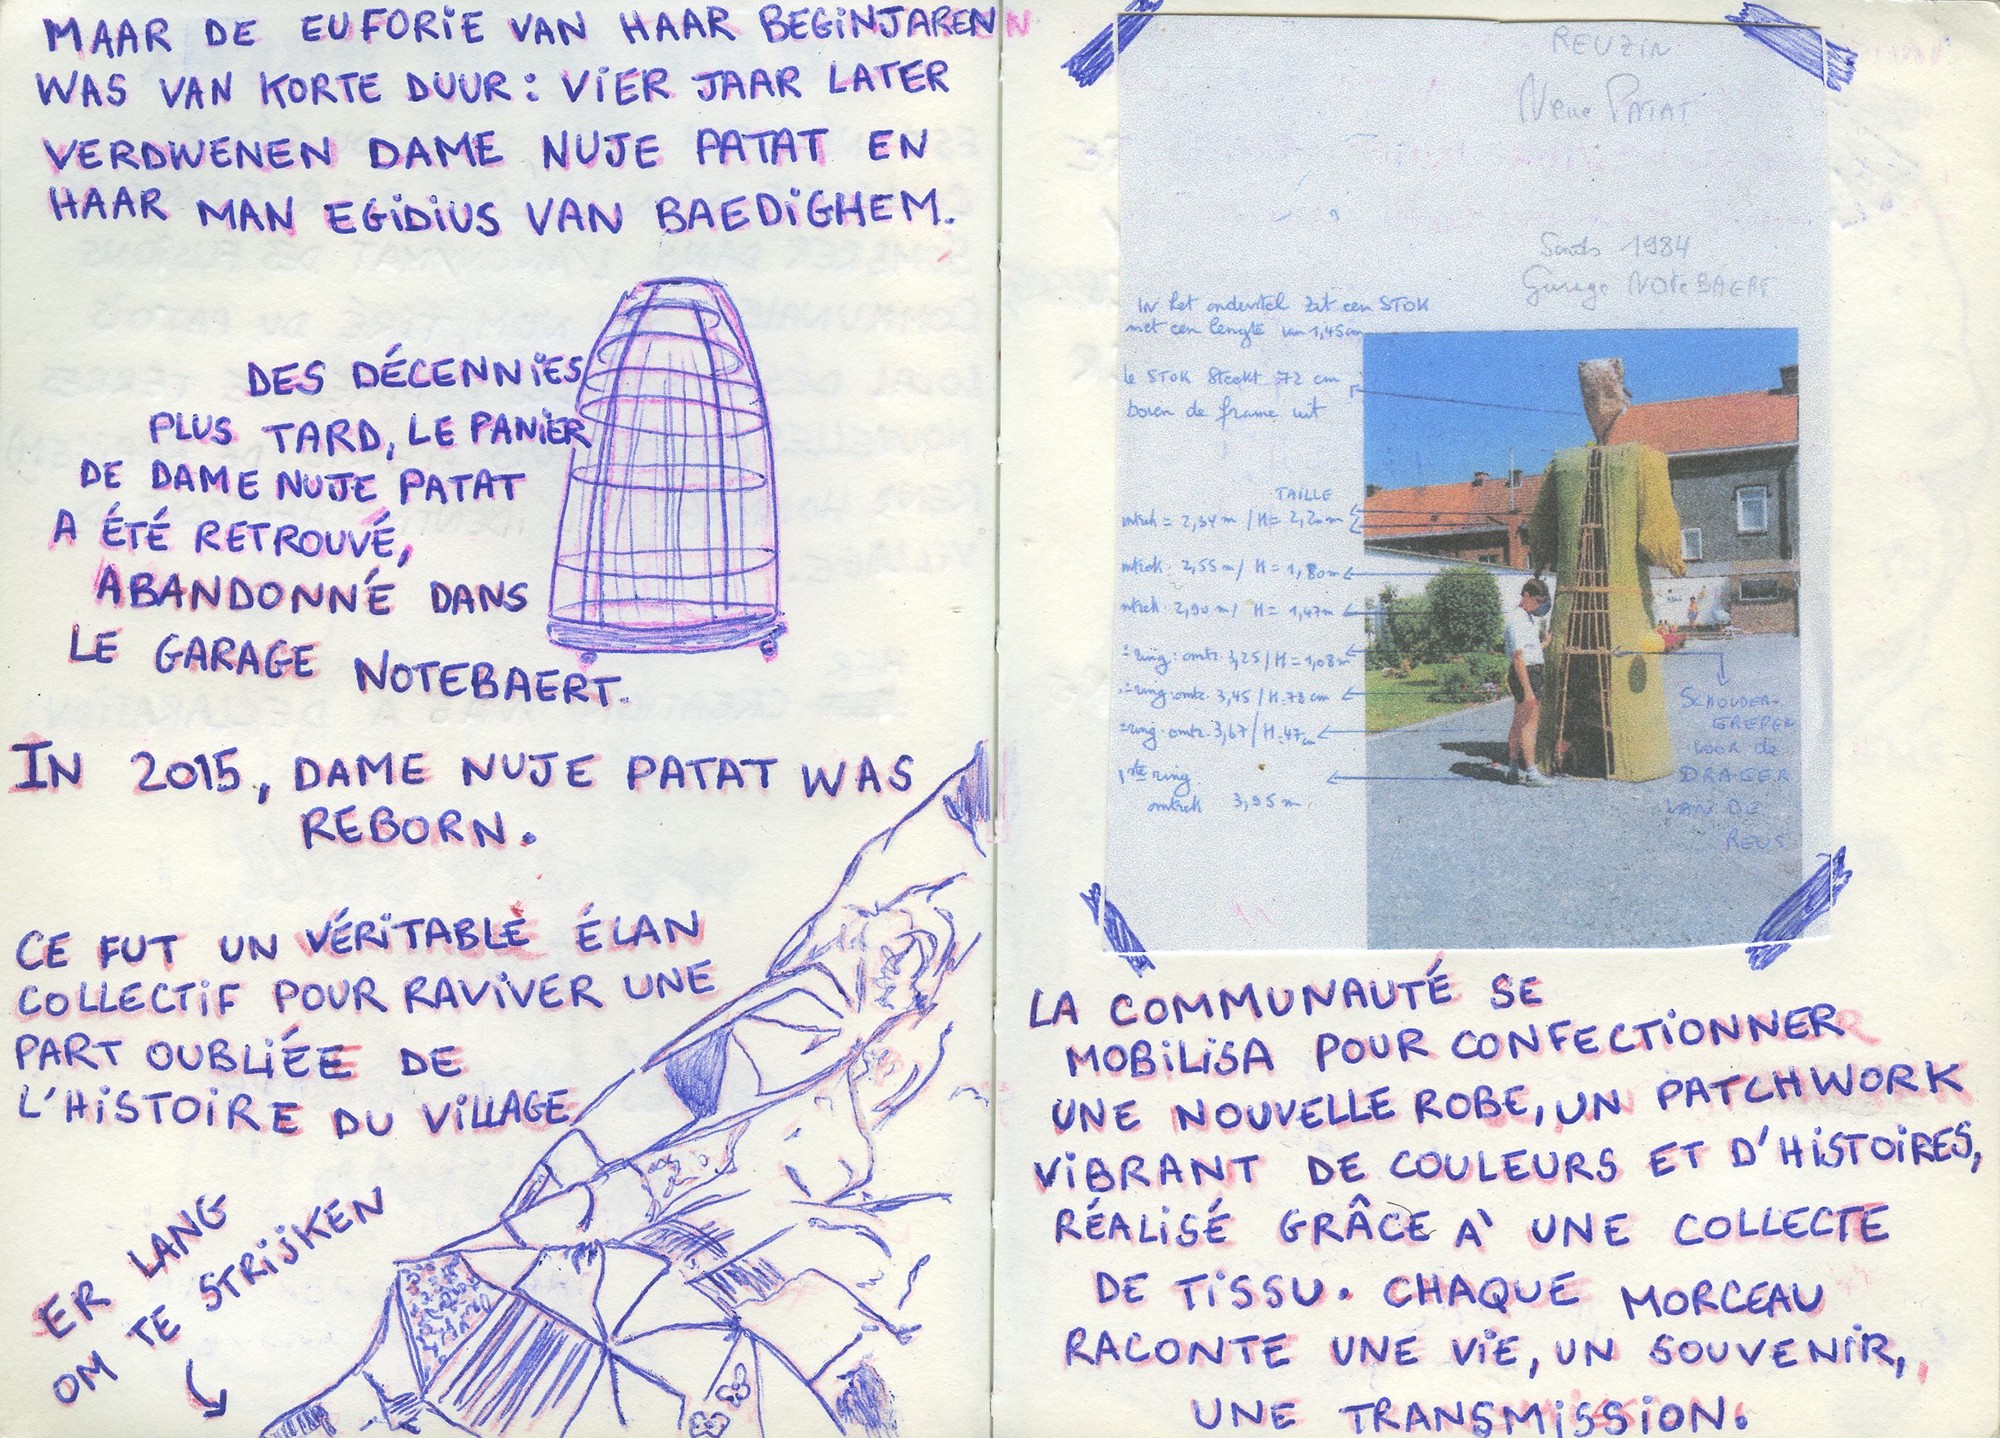 MAAR DE EUFORIE VAN HAAR BEGINJAREN
WAS VAN KORTE DUUR : VIER JAAR LATER
VERDWENEN DAME NUJE PATAT EN
HAAR MAN EGIDIUS VAN BAEDIGHEM.
DES DÉCENNIES
PLUS TARD, LE PANIER
DE DAME NUJE PATAT
A ÉTÉ RETROUVÉ,
ABANDONNÉ DANS
LE GARAGE NOTEBAERT.
IN 2015, DAME NUJE PATAT WAS
REBORN.
CE FUT UN VÉRITABLE ÉLAN
COLLECTIF POUR RAVIVER UNE
PART OUBLIÉE DE
L'HISTOIRE DU VILLAGE
ER LANG
OM TE STRIJKEN
REUZIN
PATAT
1984
Garage NOTEBAERT
IN het onderstel zit een STOK
met een lengte van 1,45m
de STOK steekt 72 cm
boven de frame uit
TAILLE
omtrek = 2,34 m / H = 2,20 m
omtrek. 2,55 m / H = 1,80 m
omtrek. 2,90 m / H = 1,47 m
ring. omtr. 3,25 / H = 1,08 m
ring omtr. 3,45 / H. 78 cm
ring. omtr. 3,67 / H. 47
1ste ring
omtrek 3,95 m.
SCHOUDER-
GREPEN
voor de
DRAGER
VAN DE
REUS
LA COMMUNAUTÉ SE
MOBILISA POUR CONFECTIONNER
UNE NOUVELLE ROBE, UN PATCHWORK
VIBRANT DE COULEURS ET D'HISTOIRES,
RÉALISÉ GRÂCE À UNE COLLECTE
DE TISSU. CHAQUE MORCEAU
RACONTE UNE VIE, UN SOUVENIR,
UNE TRANSMISSION.